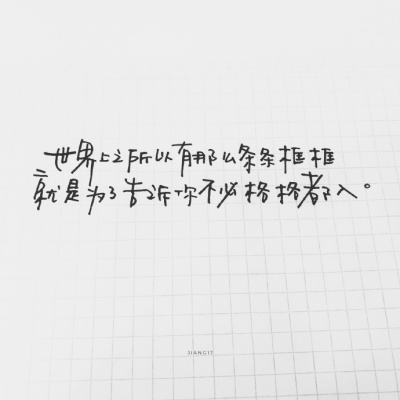 世界上之所以有那么条条框框
就是为了告诉你不必格格都入。
JIANG17